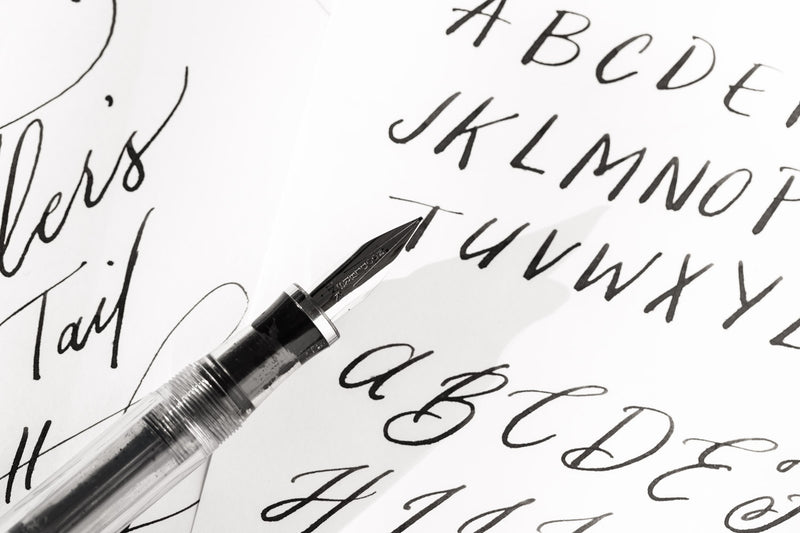 Tail
A B C D E
J K L M N O P
T U V W X Y Z
A B C D E
H I J